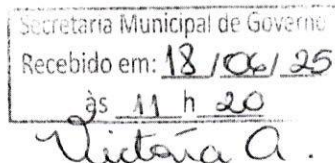 Secretaria Municipal de Governo
Recebido em: 18/06/25
às 11 h 20
Victória A.